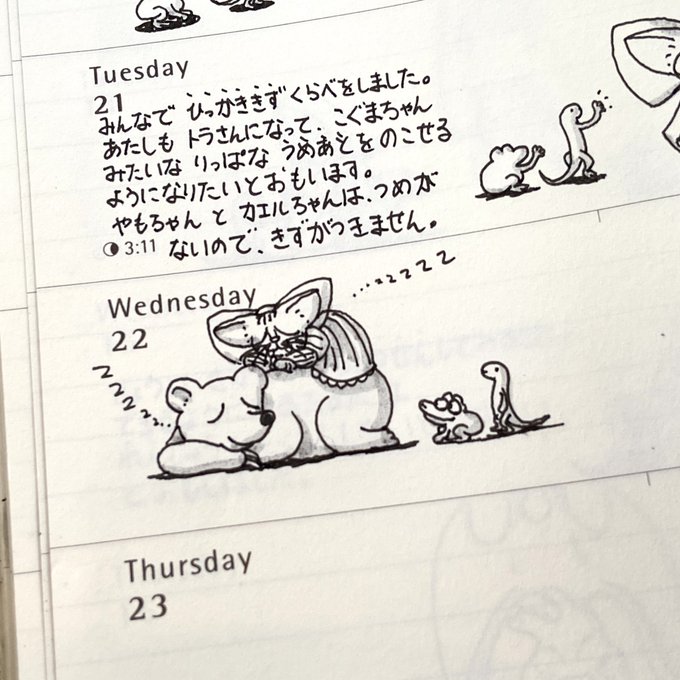 Tuesday
21
みんなで ひっかききず くらべをしました。
あたしも トラさんになって、こぐまちゃん
みたいな りっぱな うめあとを のこせる
ようになりたいとおもいます。
やもちゃん と カエルちゃんは、つめが
3:11 ないので、きずがつきません。
Wednesday
22
zzzz
zzzzz
Thursday
23